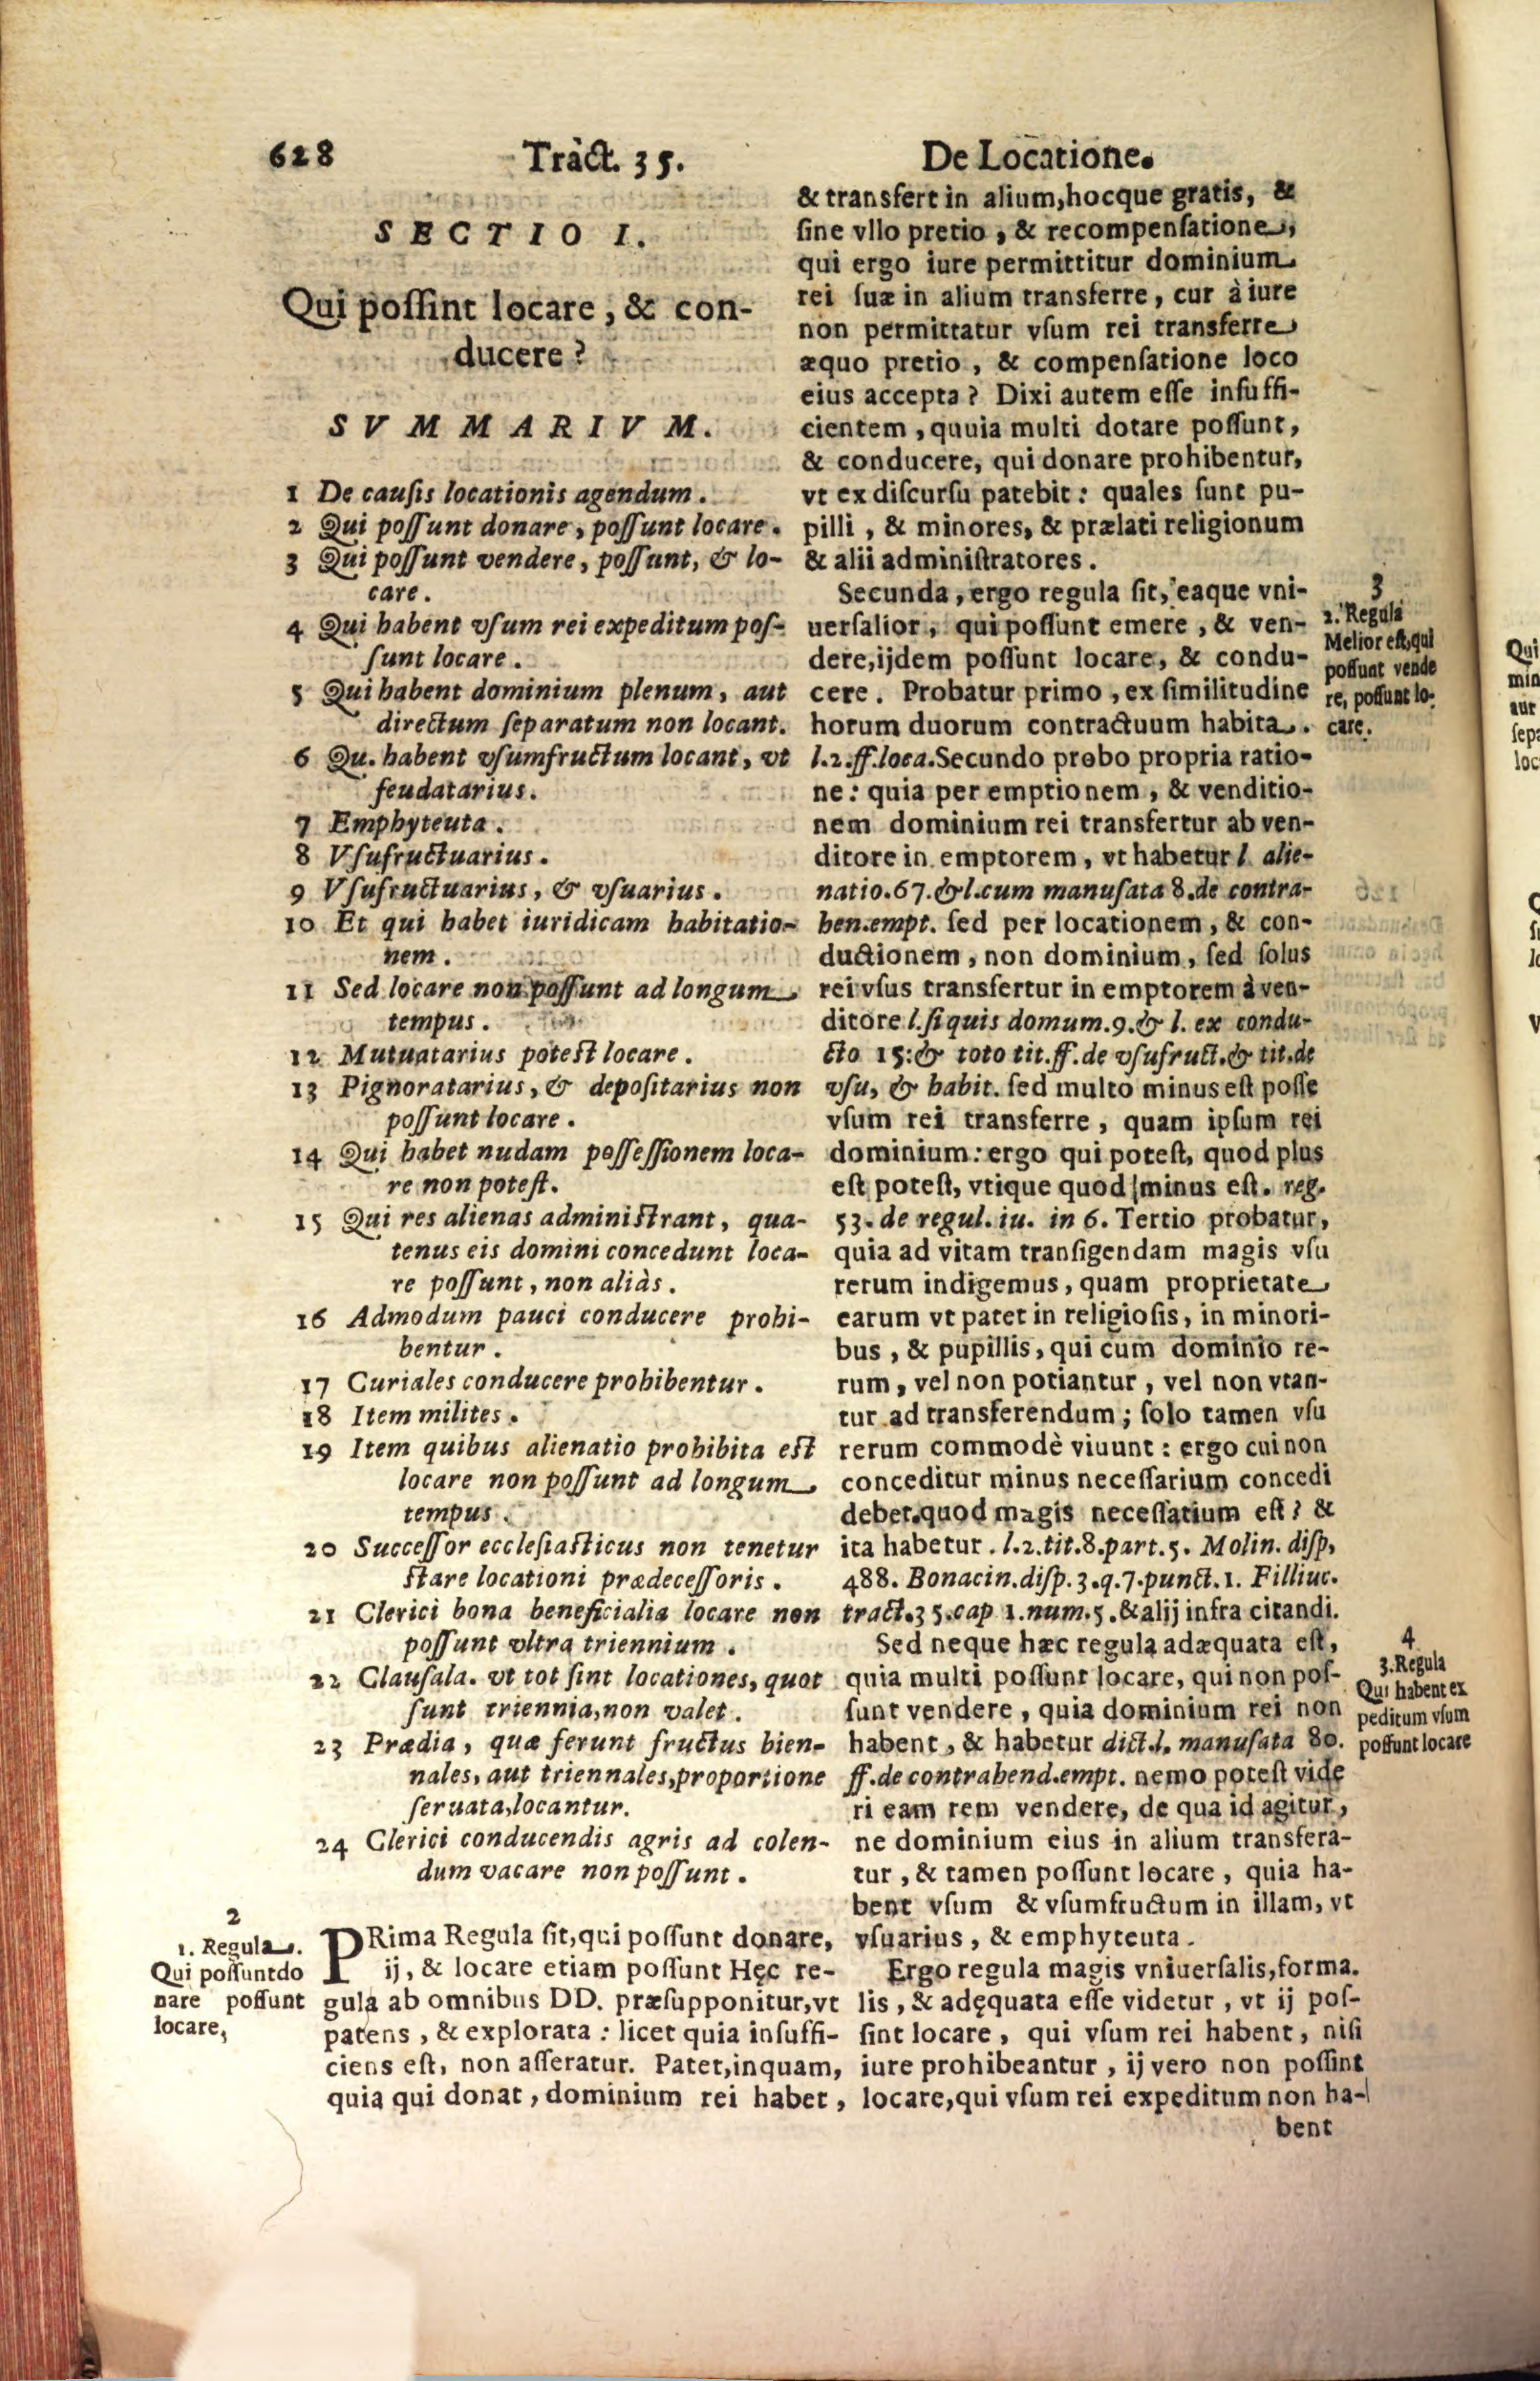 628 Tract. 35. De Locatione.
SECTIO I.
Qui poſſint locare, & con-
ducere?
SVMMARIVM.
1 De cauſis locationis agendum.
2 Qui poſſunt donare, poſſunt locare.
3 Qui poſſunt vendere, poſſunt, & lo-
care.
4 Qui habent vſum rei expeditum poſ-
ſunt locare.
5 Qui habent dominium plenum, aut
directum ſeparatum non locant.
6 Qu. habent vſumfructum locant, vt
feudatarius.
7 Emphyteuta.
8 Vſufructuarius.
9 Vſufructuarius, & vſuarius.
10 Et qui habet iuridicam habitatio-
nem.
11 Sed locare non poſſunt ad longum
tempus.
12 Mutuatarius poteſt locare.
13 Pignoratarius, & depoſitarius non
poſſunt locare.
14 Qui habet nudam poſſeſſionem loca-
re non poteſt.
15 Qui res alienas adminiſtrant, qua-
tenus eis domini concedunt loca-
re poſſunt, non aliàs.
16 Admodum pauci conducere prohi-
bentur.
17 Curiales conducere prohibentur.
18 Item milites.
19 Item quibus alienatio prohibita eſt
locare non poſſunt ad longum
tempus.
20 Succeſſor eccleſiaſticus non tenetur
ſtare locationi prædeceſſoris.
21 Clerici bona beneficialia locare non
poſſunt vltra triennium.
22 Clauſala. vt tot ſint locationes, quot
ſunt triennia, non valet.
23 Prædia, quæ ferunt fructus bien-
nales, aut triennales, proportione
ſeruata, locantur.
24 Clerici conducendis agris ad colen-
dum vacare non poſſunt.
2
1. Regula.
Qui poſſunt do
nare poſſunt
locare,
PRima Regula ſit, qui poſſunt donare,
ij, & locare etiam poſſunt Hęc re-
gula ab omnibus DD. præſupponitur, vt
patens, & explorata: licet quia inſuffi-
ciens eſt, non aſſeratur. Patet, inquam,
quia qui donat, dominium rei habet,
& transfert in alium, hocque gratis, &
ſine vllo pretio, & recompenſatione,
qui ergo iure permittitur dominium
rei ſuæ in alium transferre, cur à iure
non permittatur vſum rei transferre
æquo pretio, & compenſatione loco
eius accepta? Dixi autem eſſe inſuffi-
cientem, quuia multi dotare poſſunt,
& conducere, qui donare prohibentur,
vt ex diſcurſu patebit: quales ſunt pu-
pilli, & minores, & prælati religionum
& alii adminiſtratores.
Secunda, ergo regula ſit, eaque vni-
uerſalior, qui poſſunt emere, & ven-
dere, ijdem poſſunt locare, & condu-
cere. Probatur primo, ex ſimilitudine
horum duorum contractuum habita.
l.2.ff.loca. Secundo probo propria ratio-
ne: quia per emptionem, & venditio-
nem dominium rei transfertur ab ven-
ditore in emptorem, vt habetur l alie-
natio.67.& l.cum manuſata 8.de contra-
hen.empt. ſed per locationem, & con-
ductionem, non dominium, ſed ſolus
rei vſus transfertur in emptorem à ven-
ditore l.ſi quis domum.9.& l. ex condu-
cto 15:& toto tit.ff.de vſufruct.& tit.de
vſu, & habit. ſed multo minus eſt poſſe
vſum rei transferre, quam ipſum rei
dominium: ergo qui poteſt, quod plus
eſt poteſt, vtique quod minus eſt. reg.
53. de regul. iu. in 6. Tertio probatur,
quia ad vitam tranſigendam magis vſu
rerum indigemus, quam proprietate
earum vt patet in religioſis, in minori-
bus, & pupillis, qui cum dominio re-
rum, vel non potiantur, vel non vtan-
tur ad transferendum; ſolo tamen vſu
rerum commodè viuunt: ergo cui non
conceditur minus neceſſarium concedi
debet.quod magis neceſſatium eſt? &
ita habetur. l.2.tit.8.part.5. Molin. diſp,
488. Bonacin.diſp.3.q.7.punct.1. Filliuc.
tract.35.cap 1.num.5.& alij infra citandi.
Sed neque hæc regula adæquata eſt,
quia multi poſſunt locare, qui non poſ-
ſunt vendere, quia dominium rei non
habent, & habetur dict.l. manuſata 80.
ff.de contrahend.empt. nemo poteſt vide
ri eam rem vendere, de qua id agitur,
ne dominium eius in alium transfera-
tur, & tamen poſſunt locare, quia ha-
bent vſum & vſumfructum in illam, vt
vſuarius, & emphyteuta.
Ergo regula magis vniuerſalis, forma.
lis, & adęquata eſſe videtur, vt ij poſ-
ſint locare, qui vſum rei habent, niſi
iure prohibeantur, ij vero non poſſint
locare, qui vſum rei expeditum non ha-
bent
3
2. Regula
Melior eſt, qui
poſſunt vende
re, poſſunt lo-
care.
4
3. Regula
Qui habent ex
peditum vſum
poſſunt locare